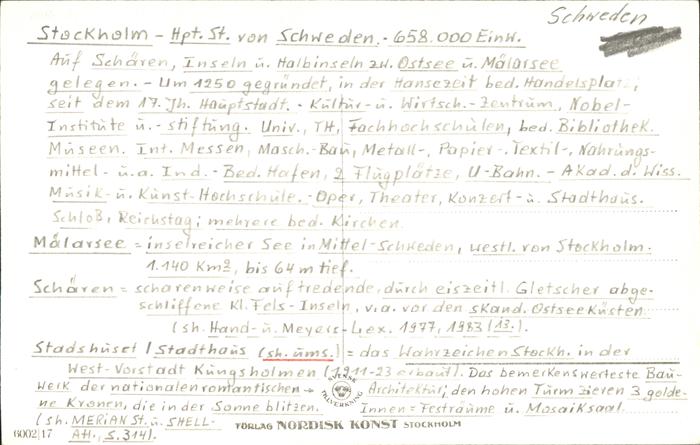 Schweden
Stockholm - Hpt. St. von Schweden. - 658.000 Einw.
Auf Schären, Inseln u. Halbinseln zw. Ostsee u. Målarsee
gelegen. - Um 1250 gegründet, in der Hansezeit bed. Handelsplatz;
seit dem 17. Jh. Hauptstadt. - Kultur- u. Wirtsch.-Zentrum, Nobel-
Institute u. -stiftung. Univ., TH, Fachhochschulen, bed. Bibliothek.
Museen. Int. Messen, Masch.-Bau, Metall-, Papier-, Textil-, Nahrungs-
mittel- u.a. Ind. - Bed. Hafen, 2 Flugplätze, U-Bahn. - Akad. d. Wiss.
Musik- u. Kunst-Hochschule. - Oper, Theater, Konzert- u. Stadthaus.
Schloß, Reichstag; mehrere bed. Kirchen.
Målarsee = inselreicher See in Mittel-Schweden, westl. von Stockholm.
1.140 Km², bis 64 m tief.
Schären = scharenweise auftredende, durch eiszeitl. Gletscher abge-
schliffene Kl. Fels-Inseln, v.a. vor den skand. Ostseeküsten
(sh. Hand- u. Meyers-Lex. 1977, 1983 (13.).
Stadshuset / Stadthaus (sh. ums.) = das Wahrzeichen Stockh. in der
West-Vorstadt Kungsholmen (1911-23 erbaut). Das bemerkenswerteste Bau-
werk der nationalromantischen → Architektur; den hohen Turm zieren 3 golde-
ne Kronen, die in der Sonne blitzen. Innen = Festräume u. Mosaiksaal.
(sh. MERIAN St. u. SHELL-
Atl., S. 314).
SVENSK
TILLVERKNING
6002/17
FÖRLAG NORDISK KONST STOCKHOLM